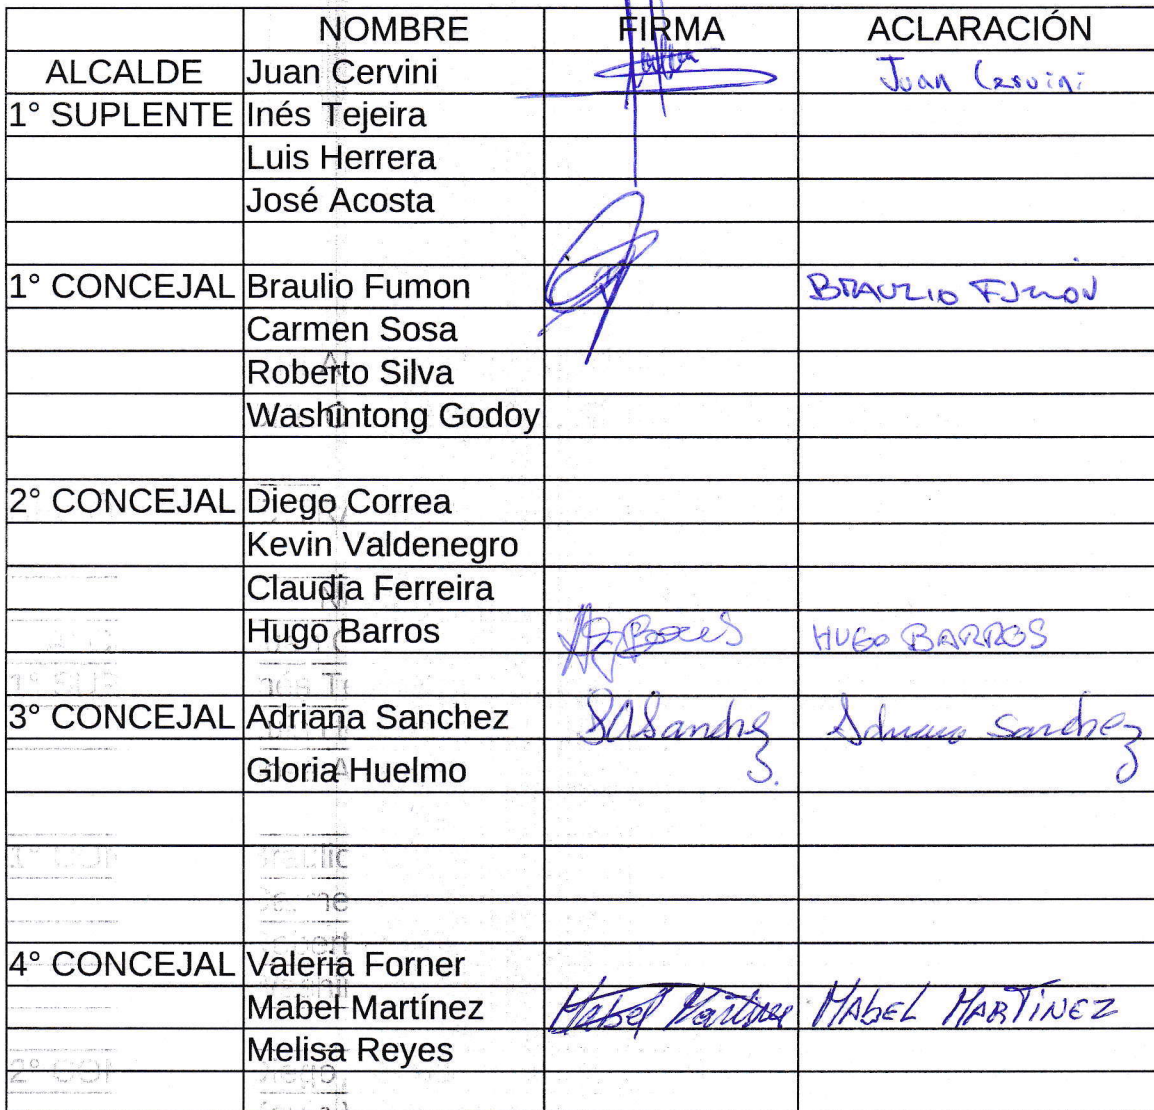 NOMBRE FIRMA ACLARACIÓN
ALCALDE Juan Cervini Juan Cervini
1° SUPLENTE Inés Tejeira
Luis Herrera
José Acosta
1° CONCEJAL Braulio Fumon BRAULIO FUMON
Carmen Sosa
Roberto Silva
Washintong Godoy
2° CONCEJAL Diego Correa
Kevin Valdenegro
Claudia Ferreira
Hugo Barros HUGO BARROS
3° CONCEJAL Adriana Sanchez SASanchez Adriana Sanchez
Gloria Huelmo
4° CONCEJAL Valeria Forner
Mabel Martínez Mabel Martinez MABEL MARTINEZ
Melisa Reyes